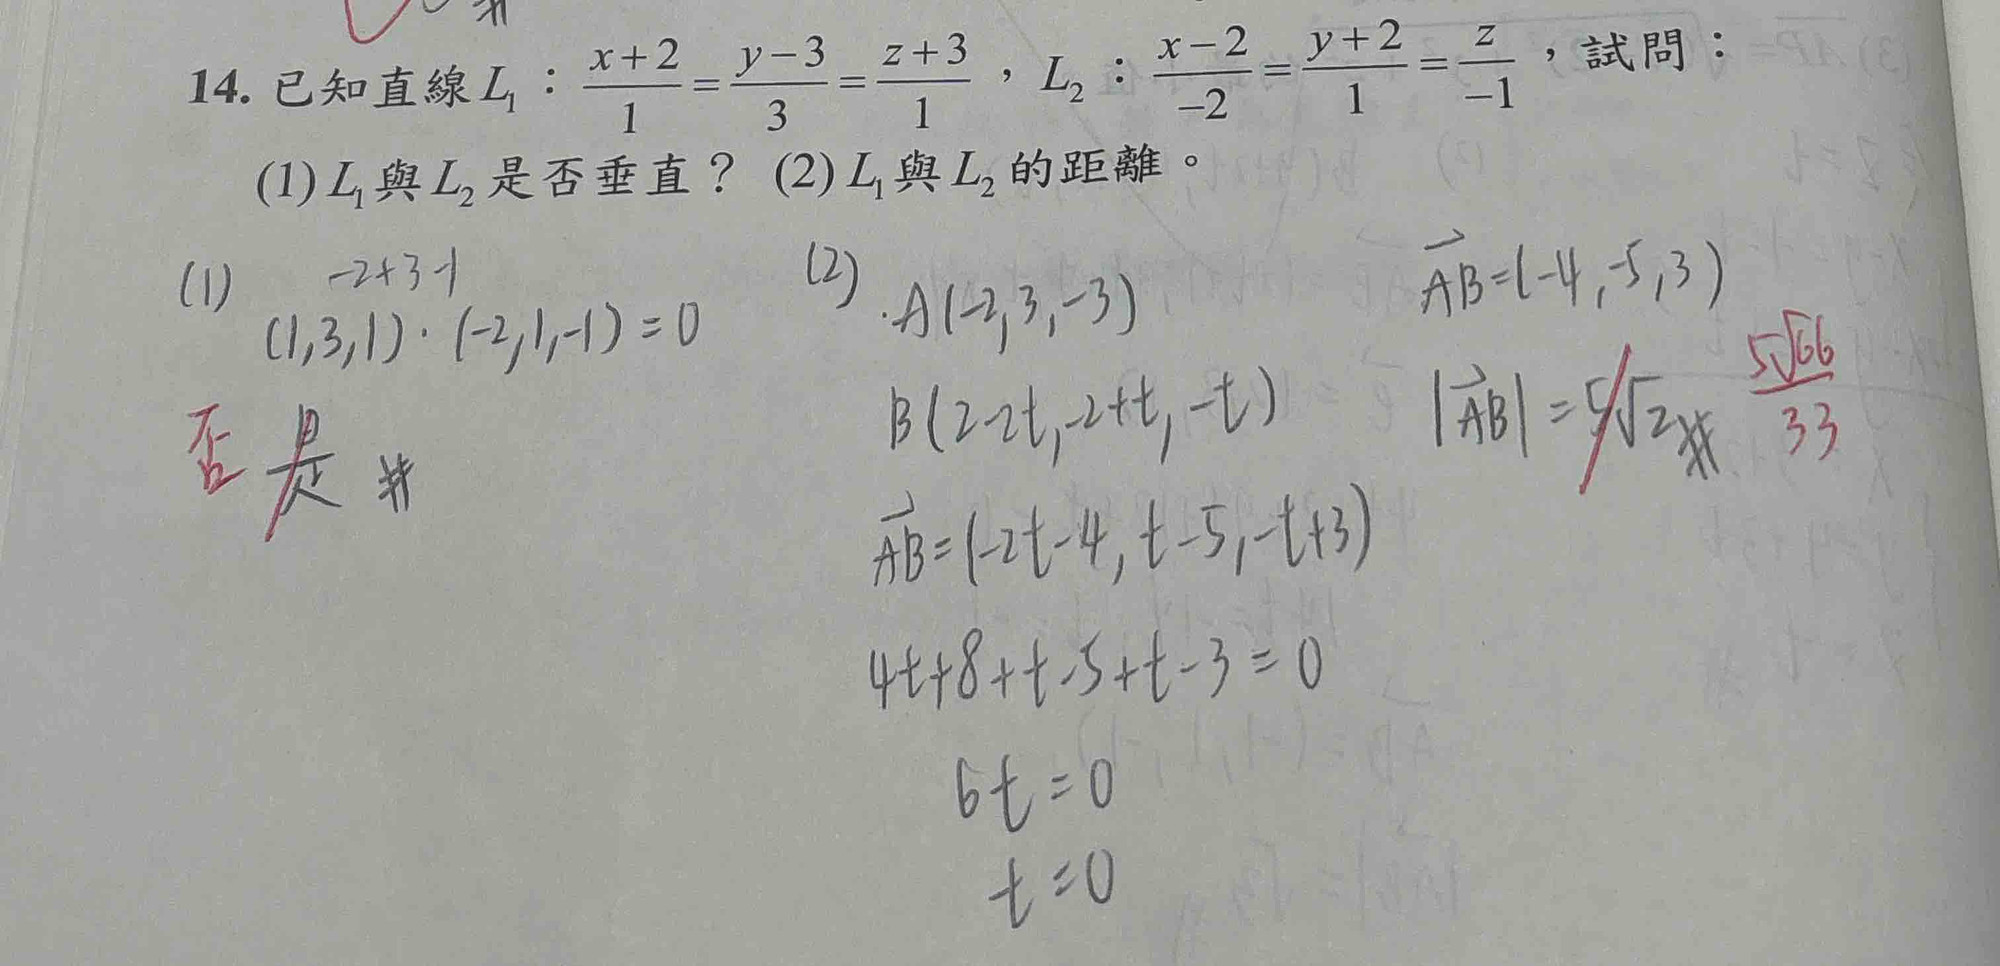 14. 已知直線 L₁：(x+2)/1 = (y−3)/3 = (z+3)/1，L₂：(x−2)/−2 = (y+2)/1 = z/−1，試問：
(1) L₁與L₂是否垂直？ (2) L₁與L₂的距離。
(1) -2+3-1
(1,3,1)·(-2,1,-1)=0
否 是 #
(2) ·A(-2,3,-3)
B(2-2t,-2+t,-t)
AB=(-2t-4,t-5,-t+3)
4t+8+t-5+t-3=0
6t=0
t=0
AB=(-4,-5,3)
|AB|=5√2 # 5√66/33